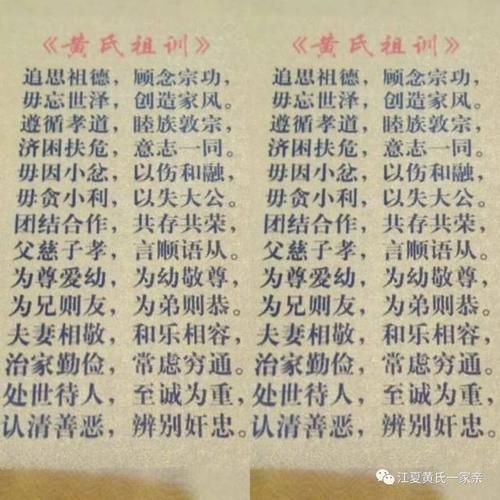 《黄氏祖训》
追思祖德，顾念宗功，
毋忘世泽，创造家风。
遵循孝道，睦族敦宗，
济困扶危，意志一同。
毋因小忿，以伤和融，
毋贪小利，以失大公。
团结合作，共存共荣，
父慈子孝，言顺语从。
为尊爱幼，为幼敬尊，
为兄则友，为弟则恭。
夫妻相敬，和乐相容，
治家勤俭，常虑穷通。
处世待人，至诚为重，
认清善恶，辨别奸忠。
《黄氏祖训》
追思祖德，顾念宗功，
毋忘世泽，创造家风。
遵循孝道，睦族敦宗，
济困扶危，意志一同。
毋因小忿，以伤和融，
毋贪小利，以失大公。
团结合作，共存共荣，
父慈子孝，言顺语从。
为尊爱幼，为幼敬尊，
为兄则友，为弟则恭。
夫妻相敬，和乐相容，
治家勤俭，常虑穷通。
处世待人，至诚为重，
认清善恶，辨别奸忠。
江夏黄氏一家亲